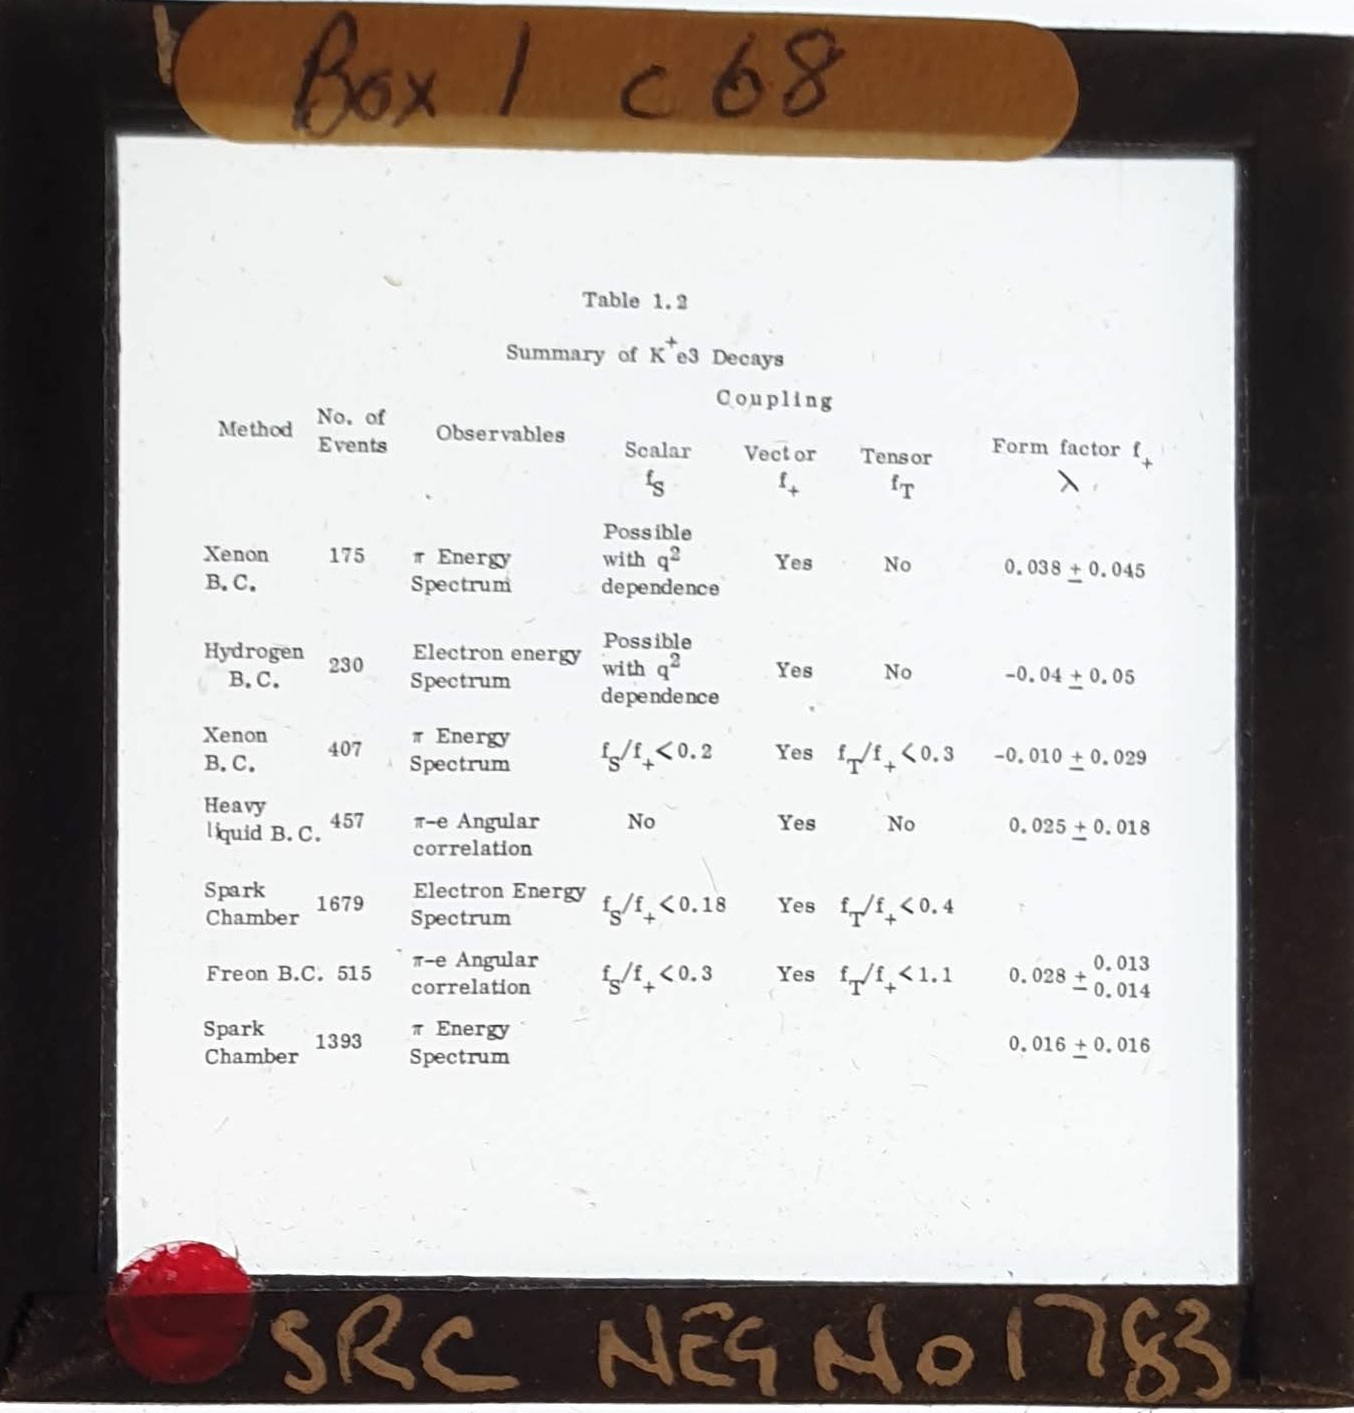 Box 1 c 68
Table 1.2
Summary of K⁺e3 Decays
Coupling
Method No. of Events Observables Scalar fS Vector f+ Tensor fT Form factor f+ λ
Xenon B.C. 175 π Energy Spectrum Possible with q² dependence Yes No 0.038 ± 0.045
Hydrogen B.C. 230 Electron energy Spectrum Possible with q² dependence Yes No -0.04 ± 0.05
Xenon B.C. 407 π Energy Spectrum fS/f+ <0.2 Yes fT/f+ <0.3 -0.010 ± 0.029
Heavy liquid B.C. 457 π-e Angular correlation No Yes No 0.025 ± 0.018
Spark Chamber 1679 Electron Energy Spectrum fS/f+ <0.18 Yes fT/f+ <0.4
Freon B.C. 515 π-e Angular correlation fS/f+ <0.3 Yes fT/f+ <1.1 0.028 ± 0.013 0.014
Spark Chamber 1393 π Energy Spectrum 0.016 ± 0.016
SRC NEG No 1783